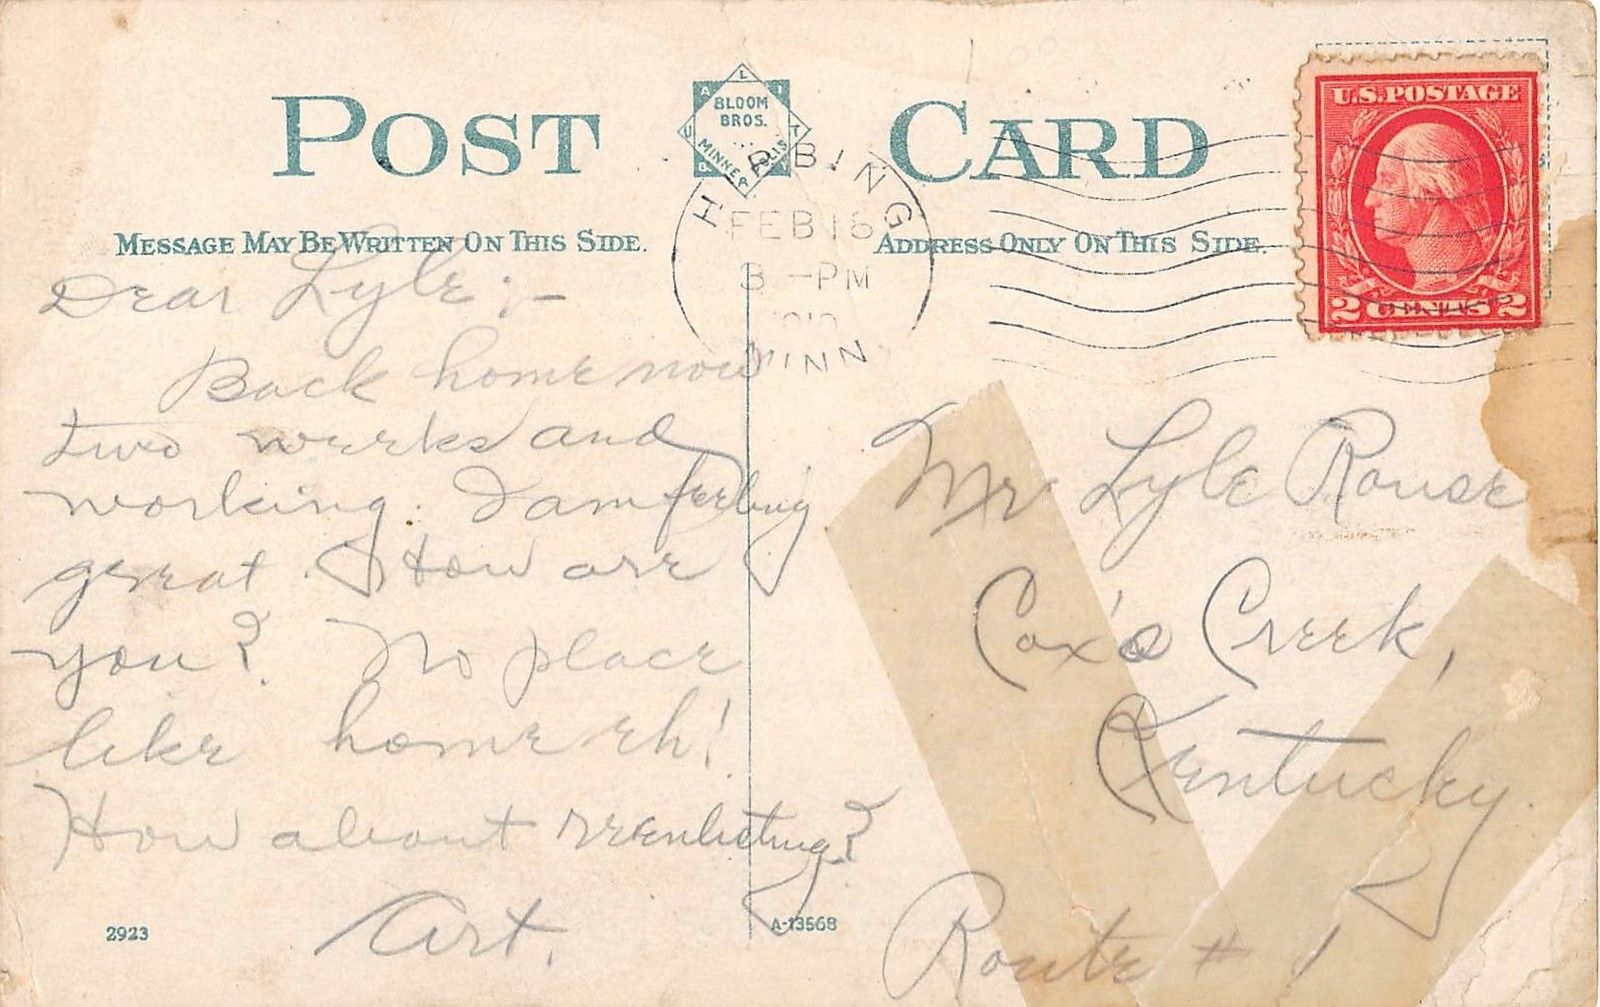 POST CARD
QUALITY
BLOOM
BROS.
MINNEAPOLIS
U.S. POSTAGE
2 CENTS 2
HIBBING
FEB 16
3 - PM
MINN
MESSAGE MAY BE WRITTEN ON THIS SIDE.
ADDRESS ONLY ON THIS SIDE.
Dear Lyle;-
Back home now
two weeks and
working. I am feeling
great. How are
you? No place
like home eh!
How about reenlisting?
Art.
2923
A-13568
Mr Lyle Rouse
Cox's Creek,
Kentucky.
Route # 1